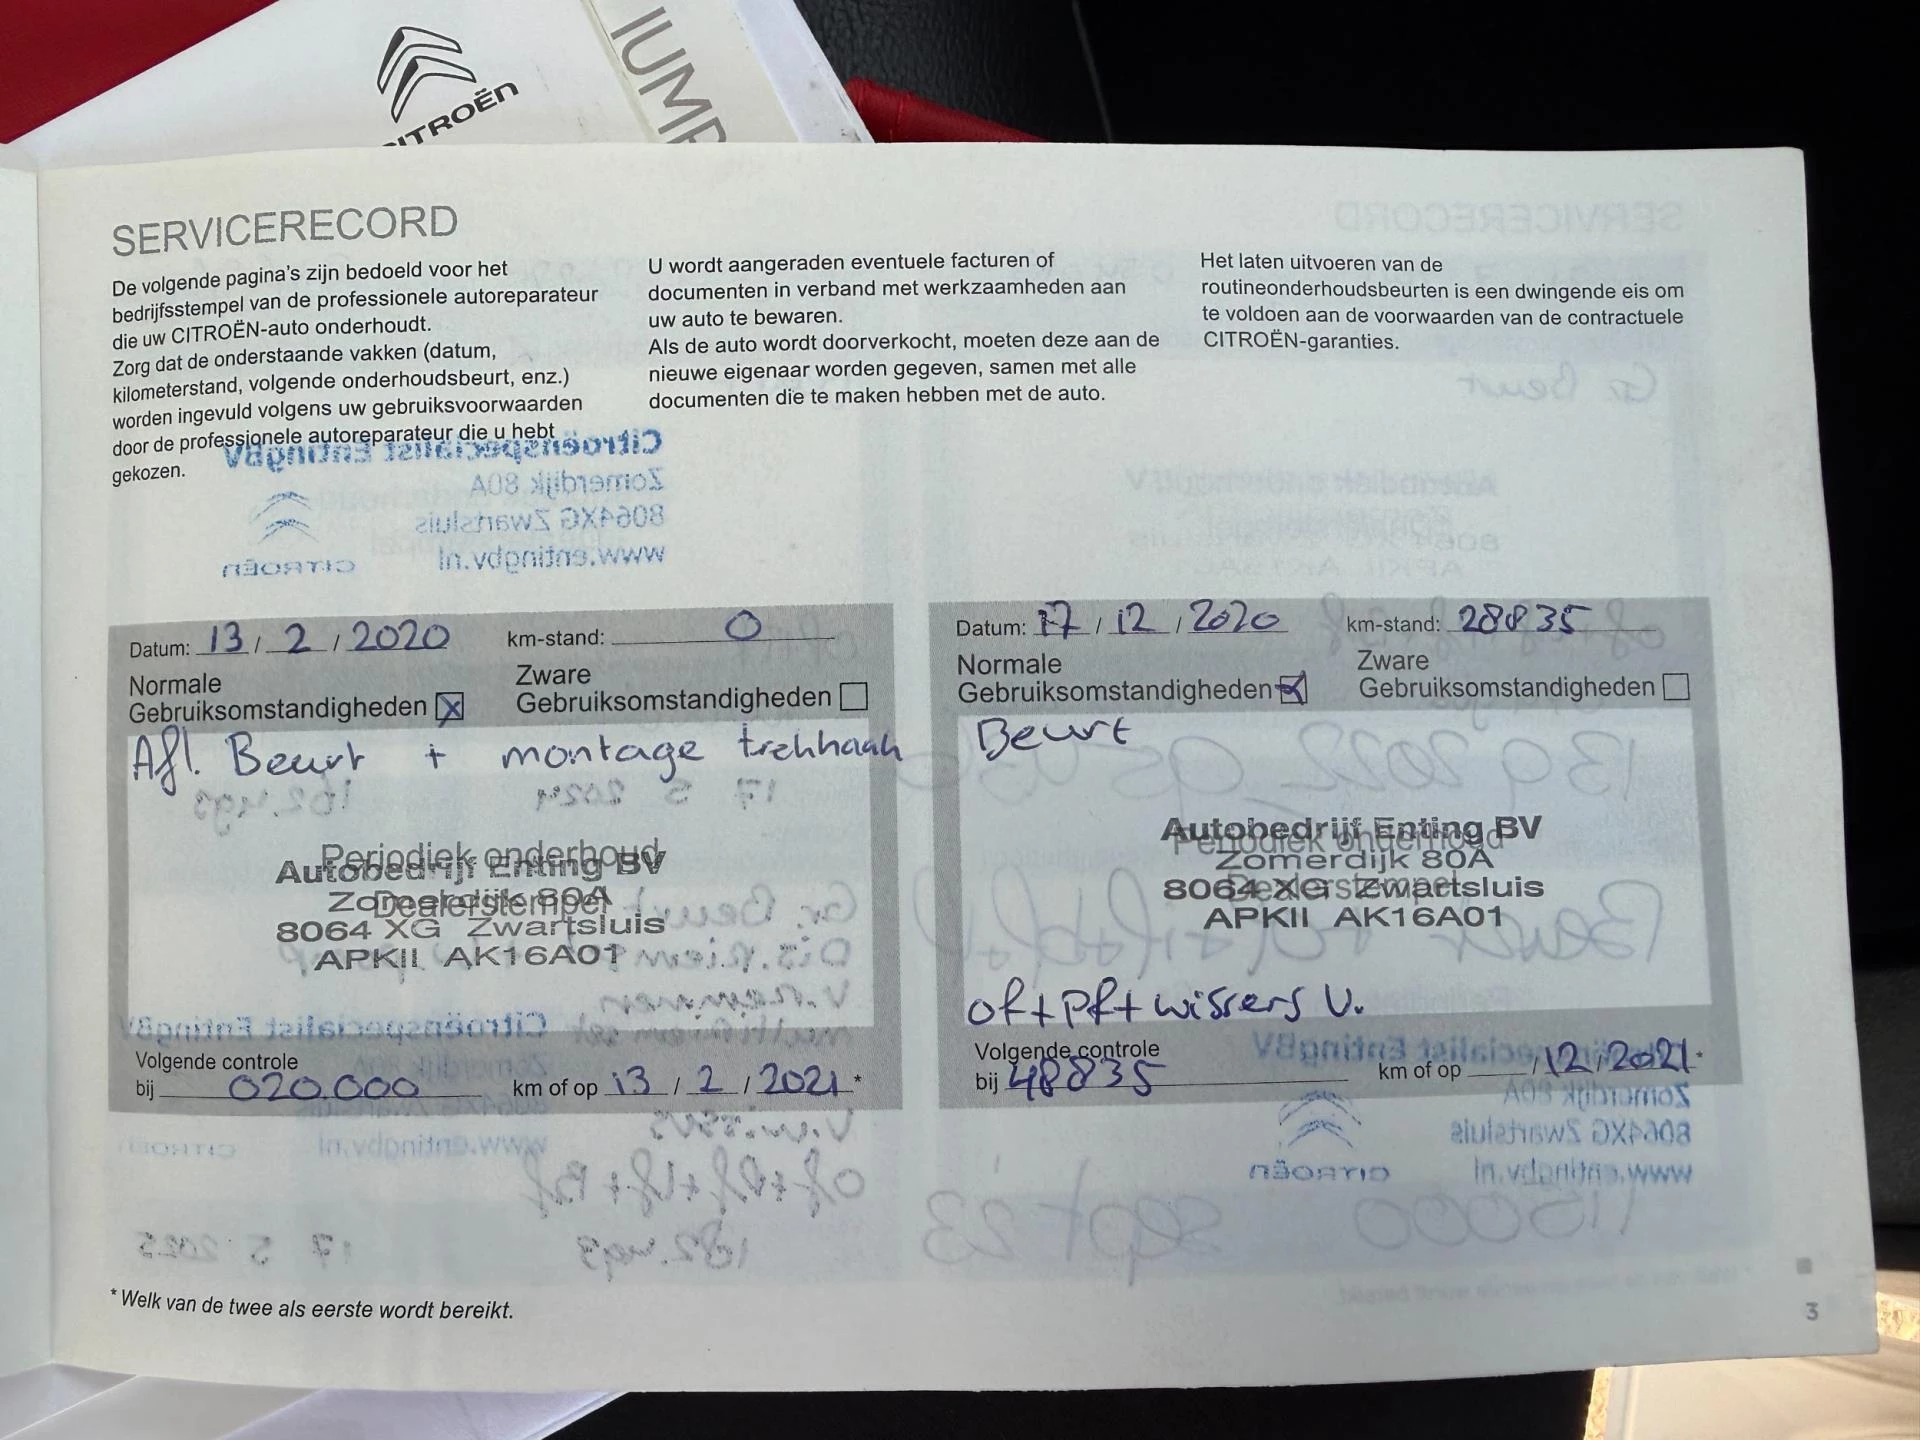 CITROËN
JUMP
SERVICERECORD
De volgende pagina's zijn bedoeld voor het
bedrijfsstempel van de professionele autoreparateur
die uw CITROËN-auto onderhoudt.
Zorg dat de onderstaande vakken (datum,
kilometerstand, volgende onderhoudsbeurt, enz.)
worden ingevuld volgens uw gebruiksvoorwaarden
door de professionele autoreparateur die u hebt
gekozen.
U wordt aangeraden eventuele facturen of
documenten in verband met werkzaamheden aan
uw auto te bewaren.
Als de auto wordt doorverkocht, moeten deze aan de
nieuwe eigenaar worden gegeven, samen met alle
documenten die te maken hebben met de auto.
Het laten uitvoeren van de
routineonderhoudsbeurten is een dwingende eis om
te voldoen aan de voorwaarden van de contractuele
CITROËN-garanties.
Citroënspecialist EntingBV
Zomerdijk 80A
8064XG Zwartsluis
www.entingbv.nl
CITROËN
Datum: 13 / 2 / 2020 km-stand: 0
Normale
Gebruiksomstandigheden x
Zware
Gebruiksomstandigheden
Afl. Beurt + montage trekhaak
Periodiek onderhoud
Autobedrijf Enting BV
Zomerdijk 80A
Dealerstempel
8064 XG Zwartsluis
APKII AK16A01
Volgende controle
bij 020.000 km of op 13 / 2 / 2021 *
Datum: 17 / 12 / 2020 km-stand: 28835
Normale
Gebruiksomstandigheden x
Zware
Gebruiksomstandigheden
Beurt
Autobedrijf Enting BV
Periodiek onderhoud
Zomerdijk 80A
8064 XG Zwartsluis
Dealerstempel
APKII AK16A01
of + pf + wissers V.
Volgende controle
bij 48835 km of op / 12 / 2021 *
Citroënspecialist EntingBV
www.entingbv.nl
Citroënspecialist EntingBV
Zomerdijk 80A
8064XG Zwartsluis
www.entingbv.nl
CITROËN
115000 sept 23
17 5 2025
* Welk van de twee als eerste wordt bereikt.
3